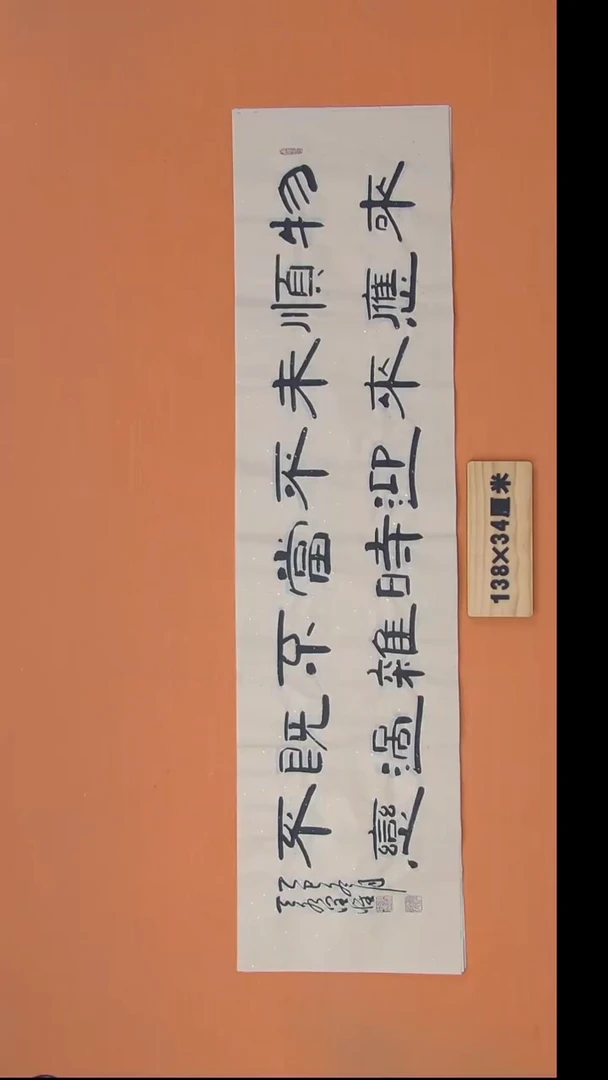 物來
順應
未來
不迎
當時
不雜
既過
不戀
138×34厘米